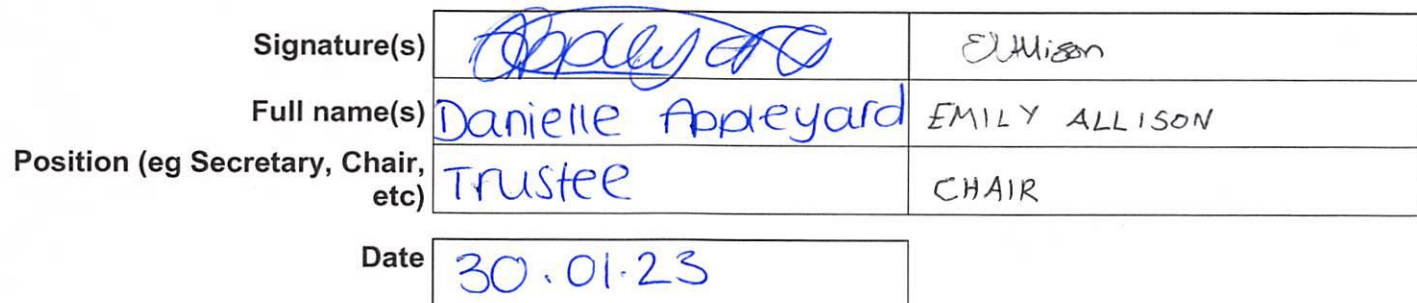 Signature(s) Appleyard EAllison
Full name(s) Danielle Appleyard EMILY ALLISON
Position (eg Secretary, Chair,
etc) Trustee CHAIR
Date 30.01.23